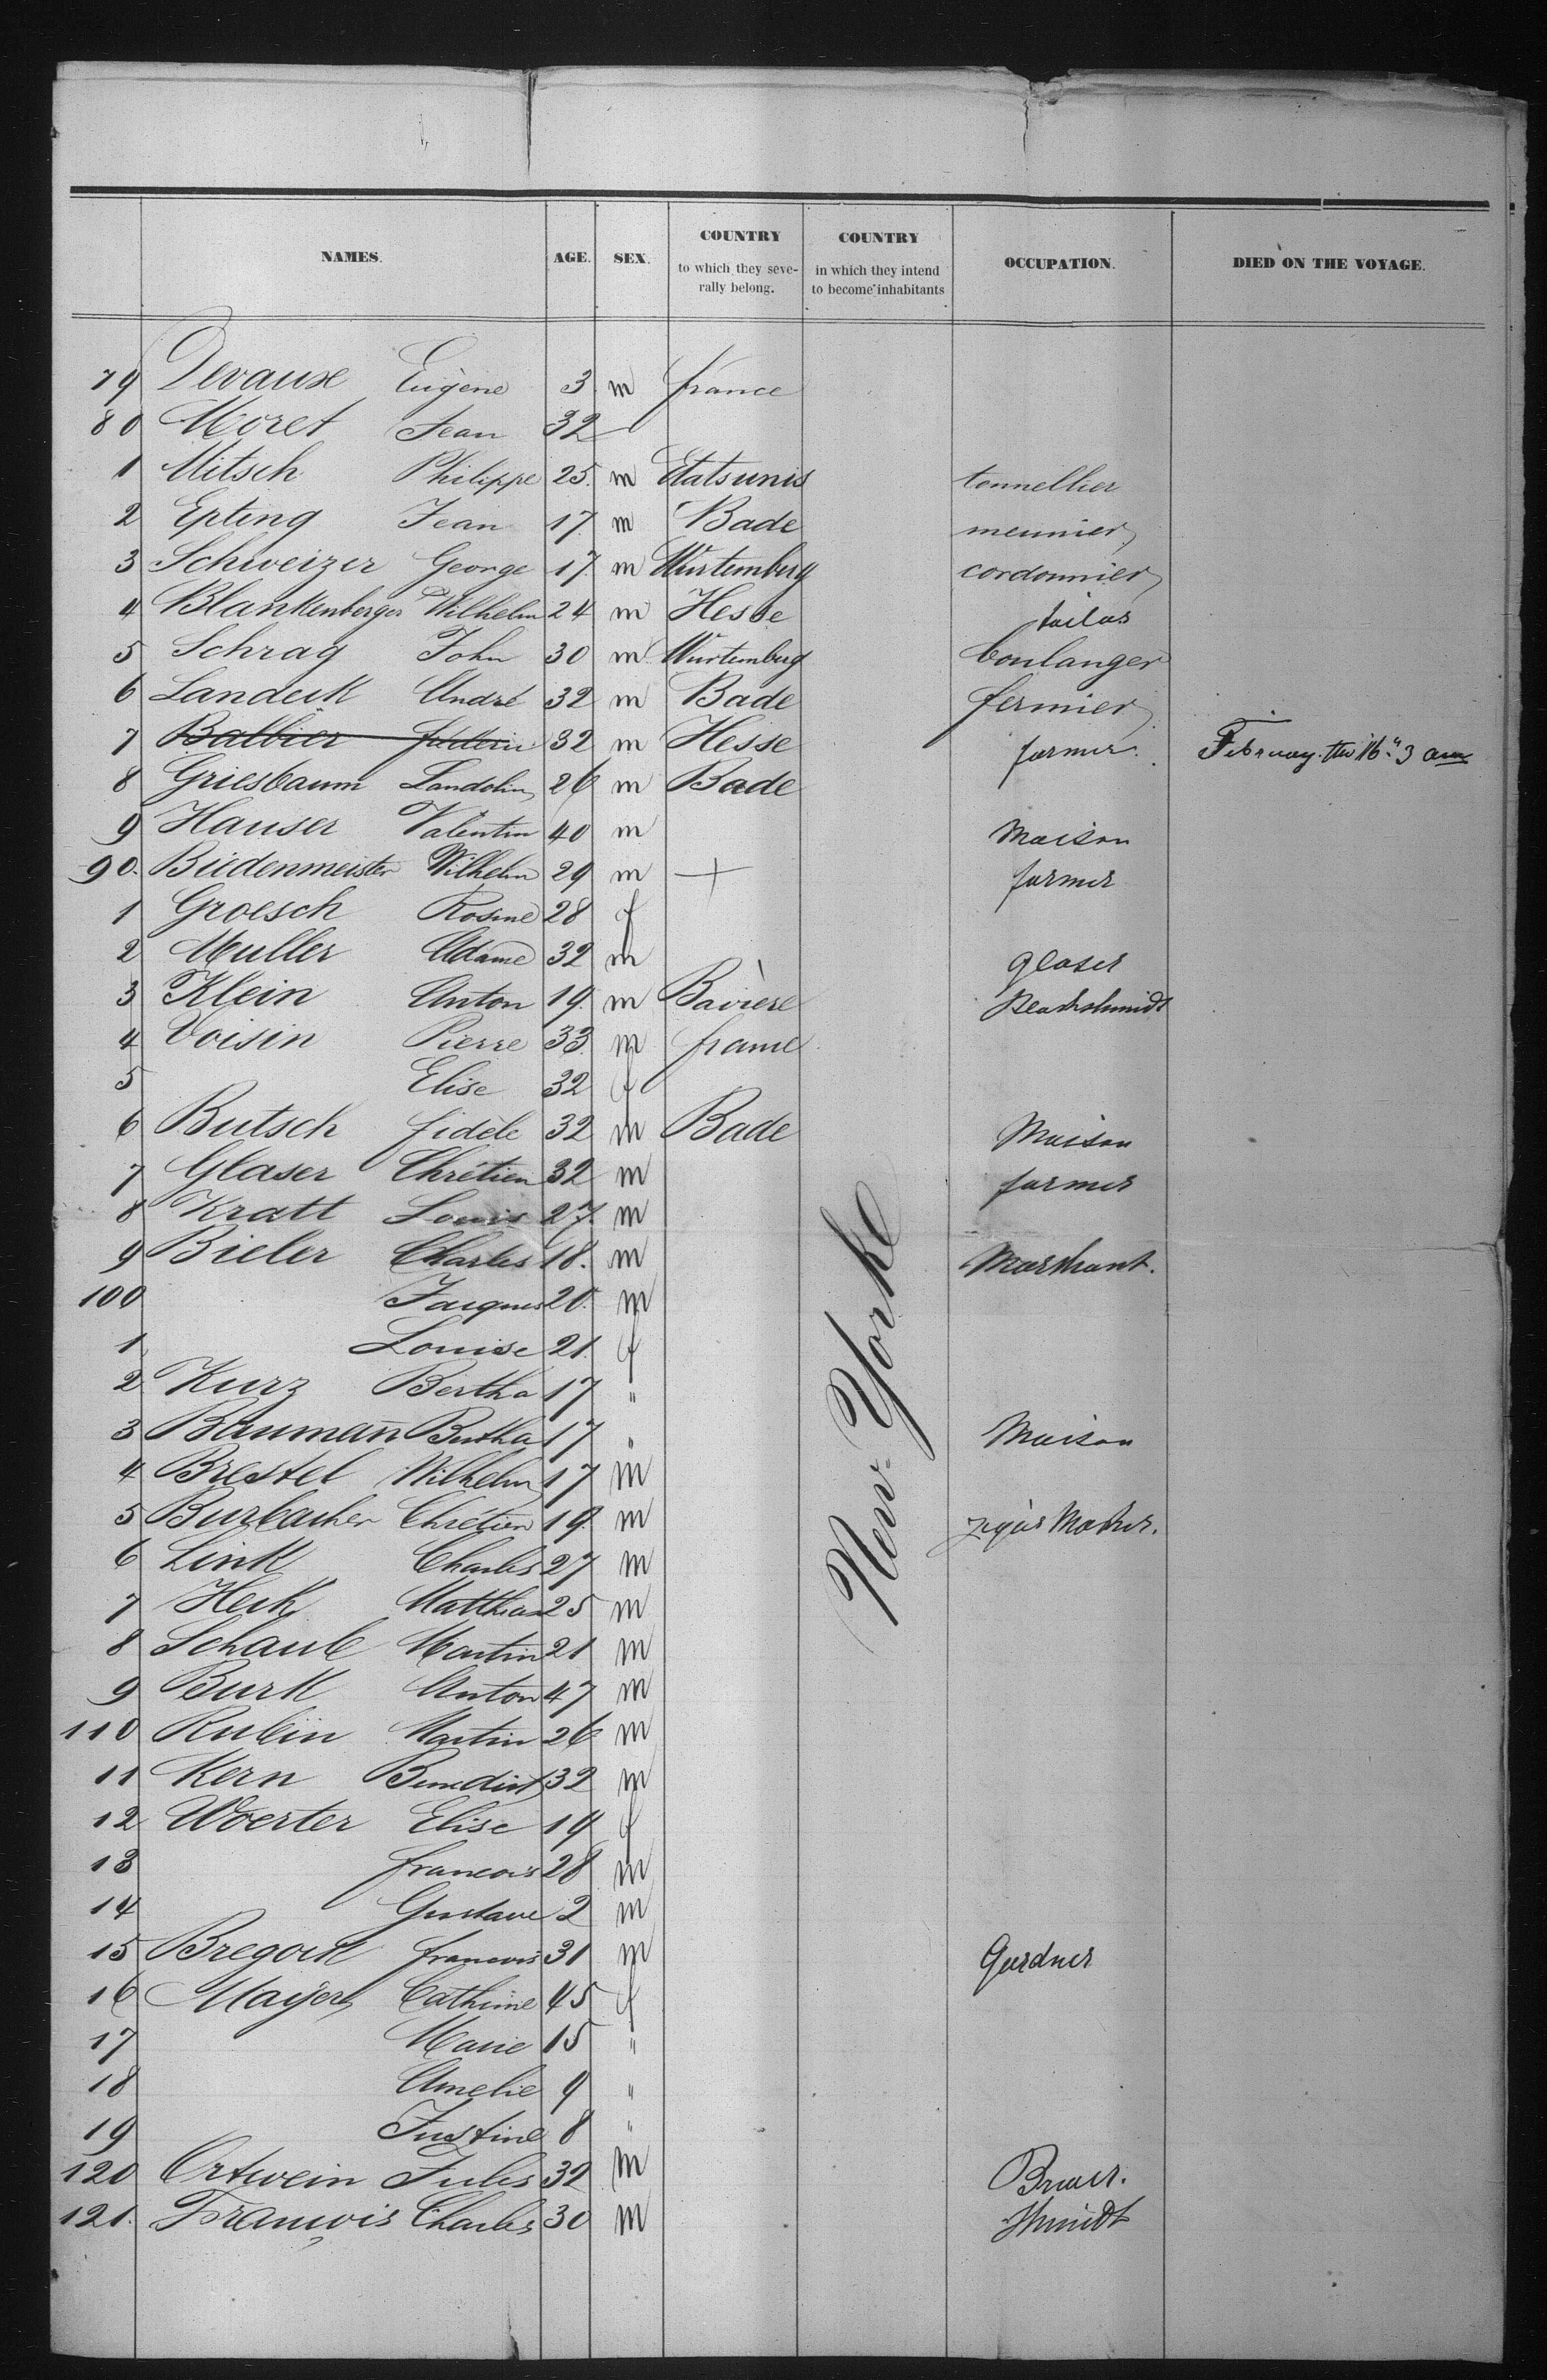 NAMES. AGE. SEX. COUNTRY to which they seve- rally belong. COUNTRY in which they intend to become inhabitants OCCUPATION. DIED ON THE VOYAGE.
79 Devause Eugène 3 m france
80 Moret Jean 32
1 Mitsch Philippe 25 m Etats unis tonnellier
2 Epting Jean 17 m Bade meunier
3 Schweizer George 17 m Würtemberg cordonnier
4 Blankenberger Wilhelm 24 m Hesse tailor
5 Schrag John 30 m Würtemberg boulanger
6 Landeck André 32 m Bade fermier
7 Balbier 32 m Hesse farmer. February the 16" 3 am
8 Griesbaum Landolin 26 m Bade
9 Hauser Valentin 40 m Maison
90. Büdenmeister Wilhelm 29 m + farmer
1 Groesch Rosine 28 f
2 Muller Adame 32 m glaser
3 Klein Anton 19 m Bavière
4 Voisin Pierre 33 m france
5 Elise 32 f
6 Butsch fidèle 32 m Bade Maison
7 Glaser Chrétien 32 m farmer
8 Kratt Louis 27 m
9 Bieler Charles 18. m Marthant.
100 Jacques 20. m
1 Louise 21 f
2 Kurz Bertha 17 "
3 Baumann Bertha 17 " Maison
4 Brestel Wilhelm 17 m
5 Burbacher Chrétien 19 m
6 Link Charles 27 m
7 Heck Matthias 25 m
8 Schaub Martin 21 m
9 Burk Anton 47 m
110 Rubin Martin 26 m
11 Kern Benedict 32 m
12 Woerter Elise 19 f
13 francois 28 m
14 Gustave 2 m
15 francois 31 m Gardner
16 Mayer Cathrine 45 f
17 Marie 15 "
18 Amelie 9 "
19 Justine 8 "
120 Ortwein Jules 32 m
121. François Charles 30 m
New-Yorke